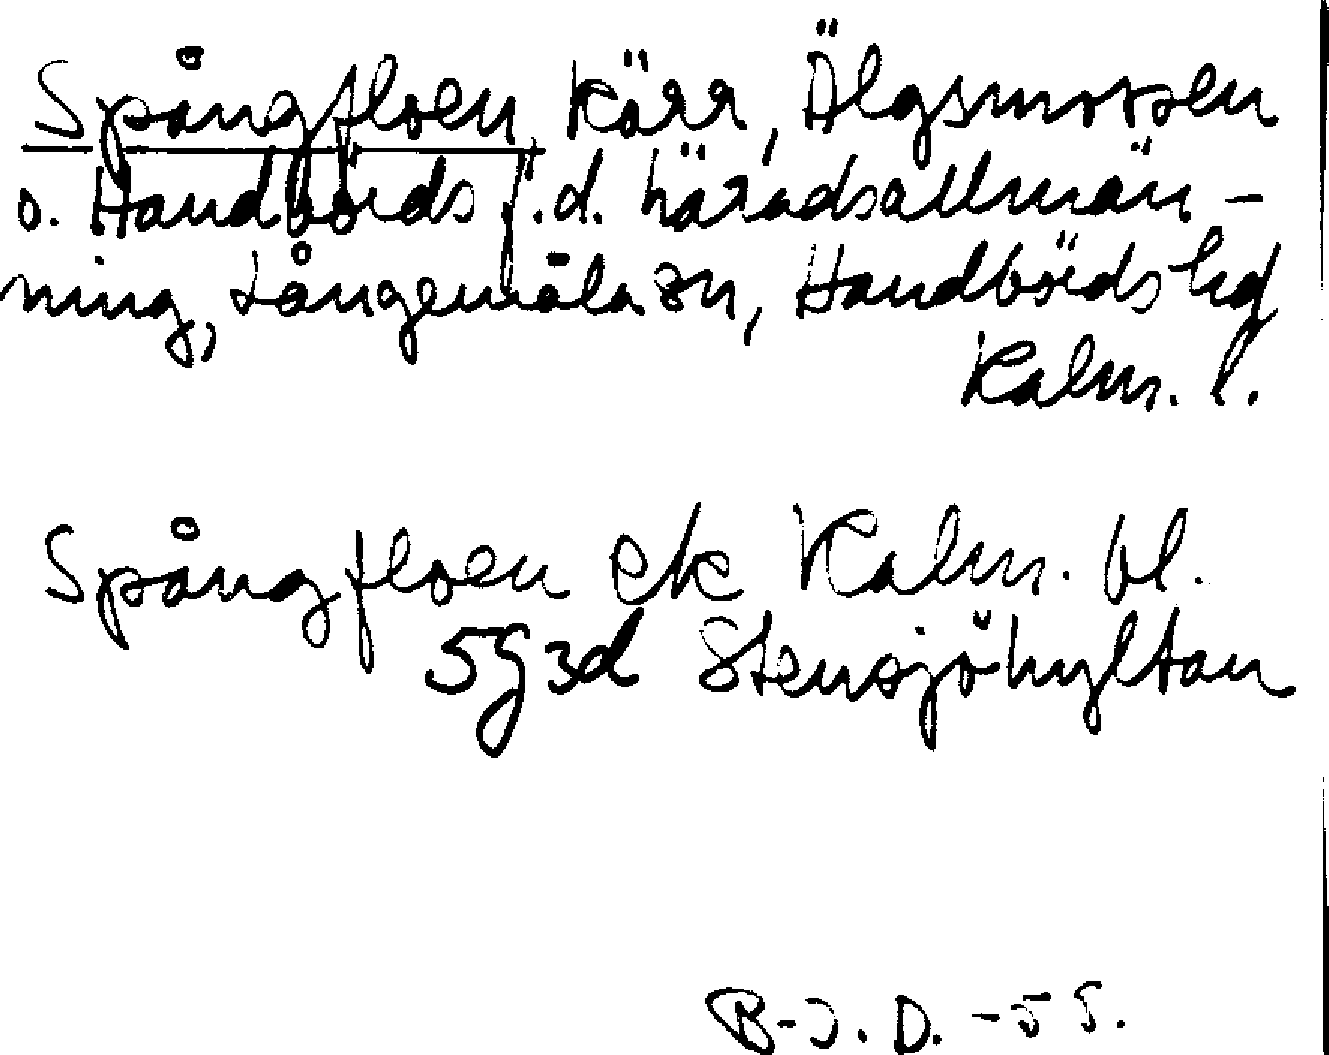 Spångfloen, kärr, Älgsmossen
o. Handbörds f.d. häradsallmän-
ning, Långemåla sn, Handbörds hd
Kalm. l.
Spångfloen ek Kalm. bl.
5G3d Stensjöhyltan
B-J. D. -55.